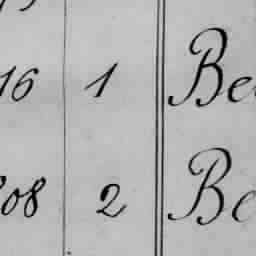 16 1 Be
08 2 Be